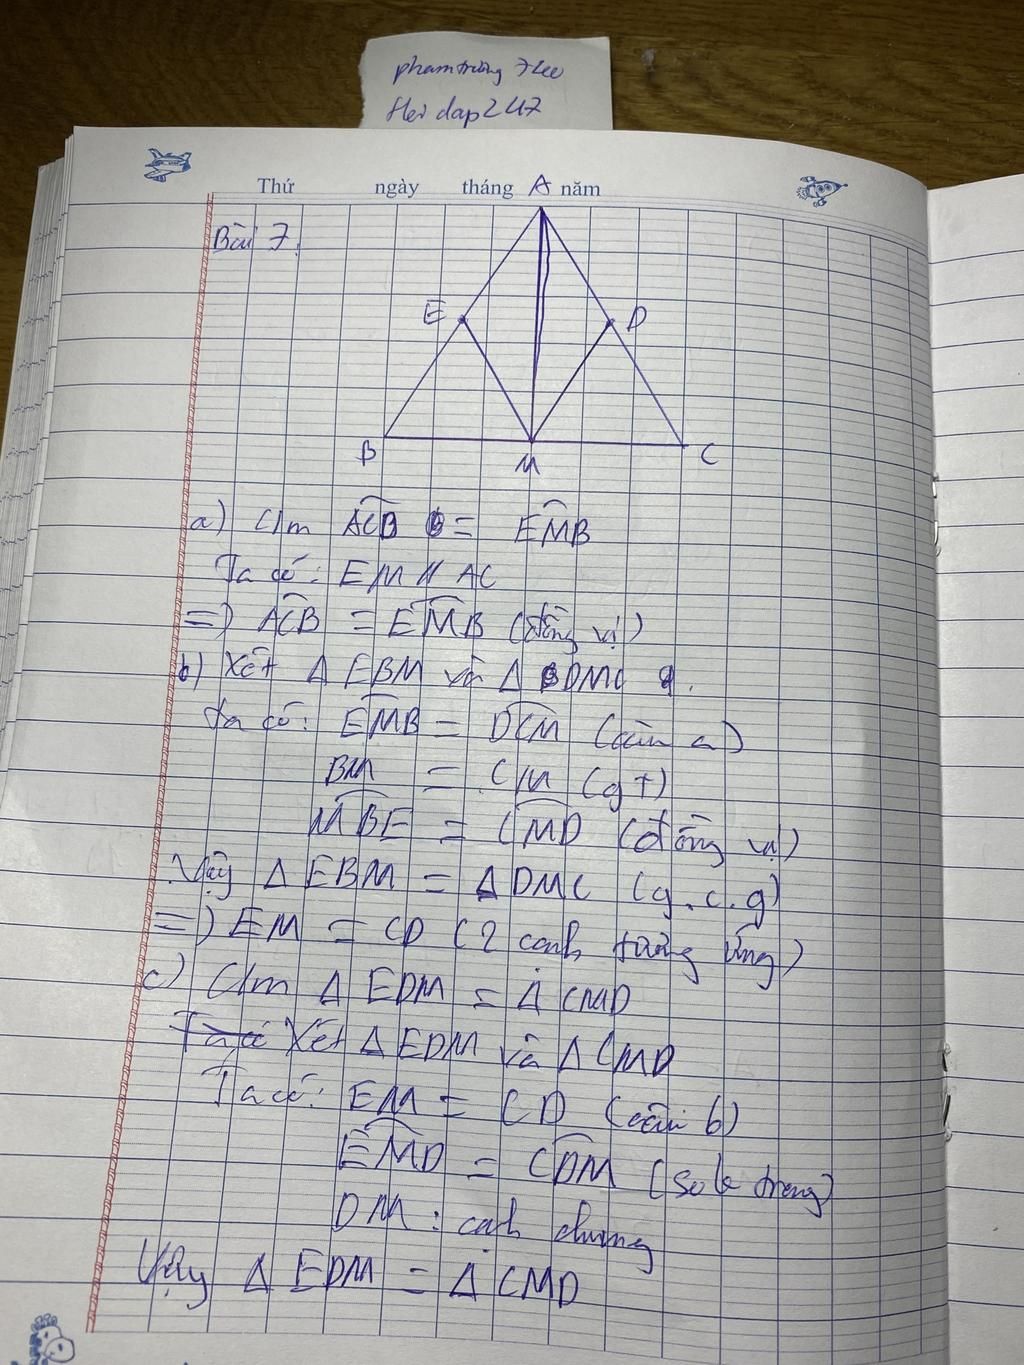 phamtrường
Hoi dap247
Thứ ngày tháng năm
A
Bài 7.
E D
B M C
a) C/m ACB = EMB
Ta có: EM // AC
=) ACB = EMB (đồng vị)
b) Xét Δ EBM và Δ DMC
Ta có: EMB = DCM (câu a)
BM = CM (gt)
MBE = CMD (đồng vị)
Vậy Δ EBM = Δ DMC (g.c.g)
=) EM = CD (2 cạnh tương ứng)
c) C/m Δ EDM = Δ CMD
Ta có Xét Δ EDM và Δ CMD
Ta có: EM = CD (câu b)
EMD = CDM (so le trong)
DM: cạnh chung
Vậy Δ EDM = Δ CMD